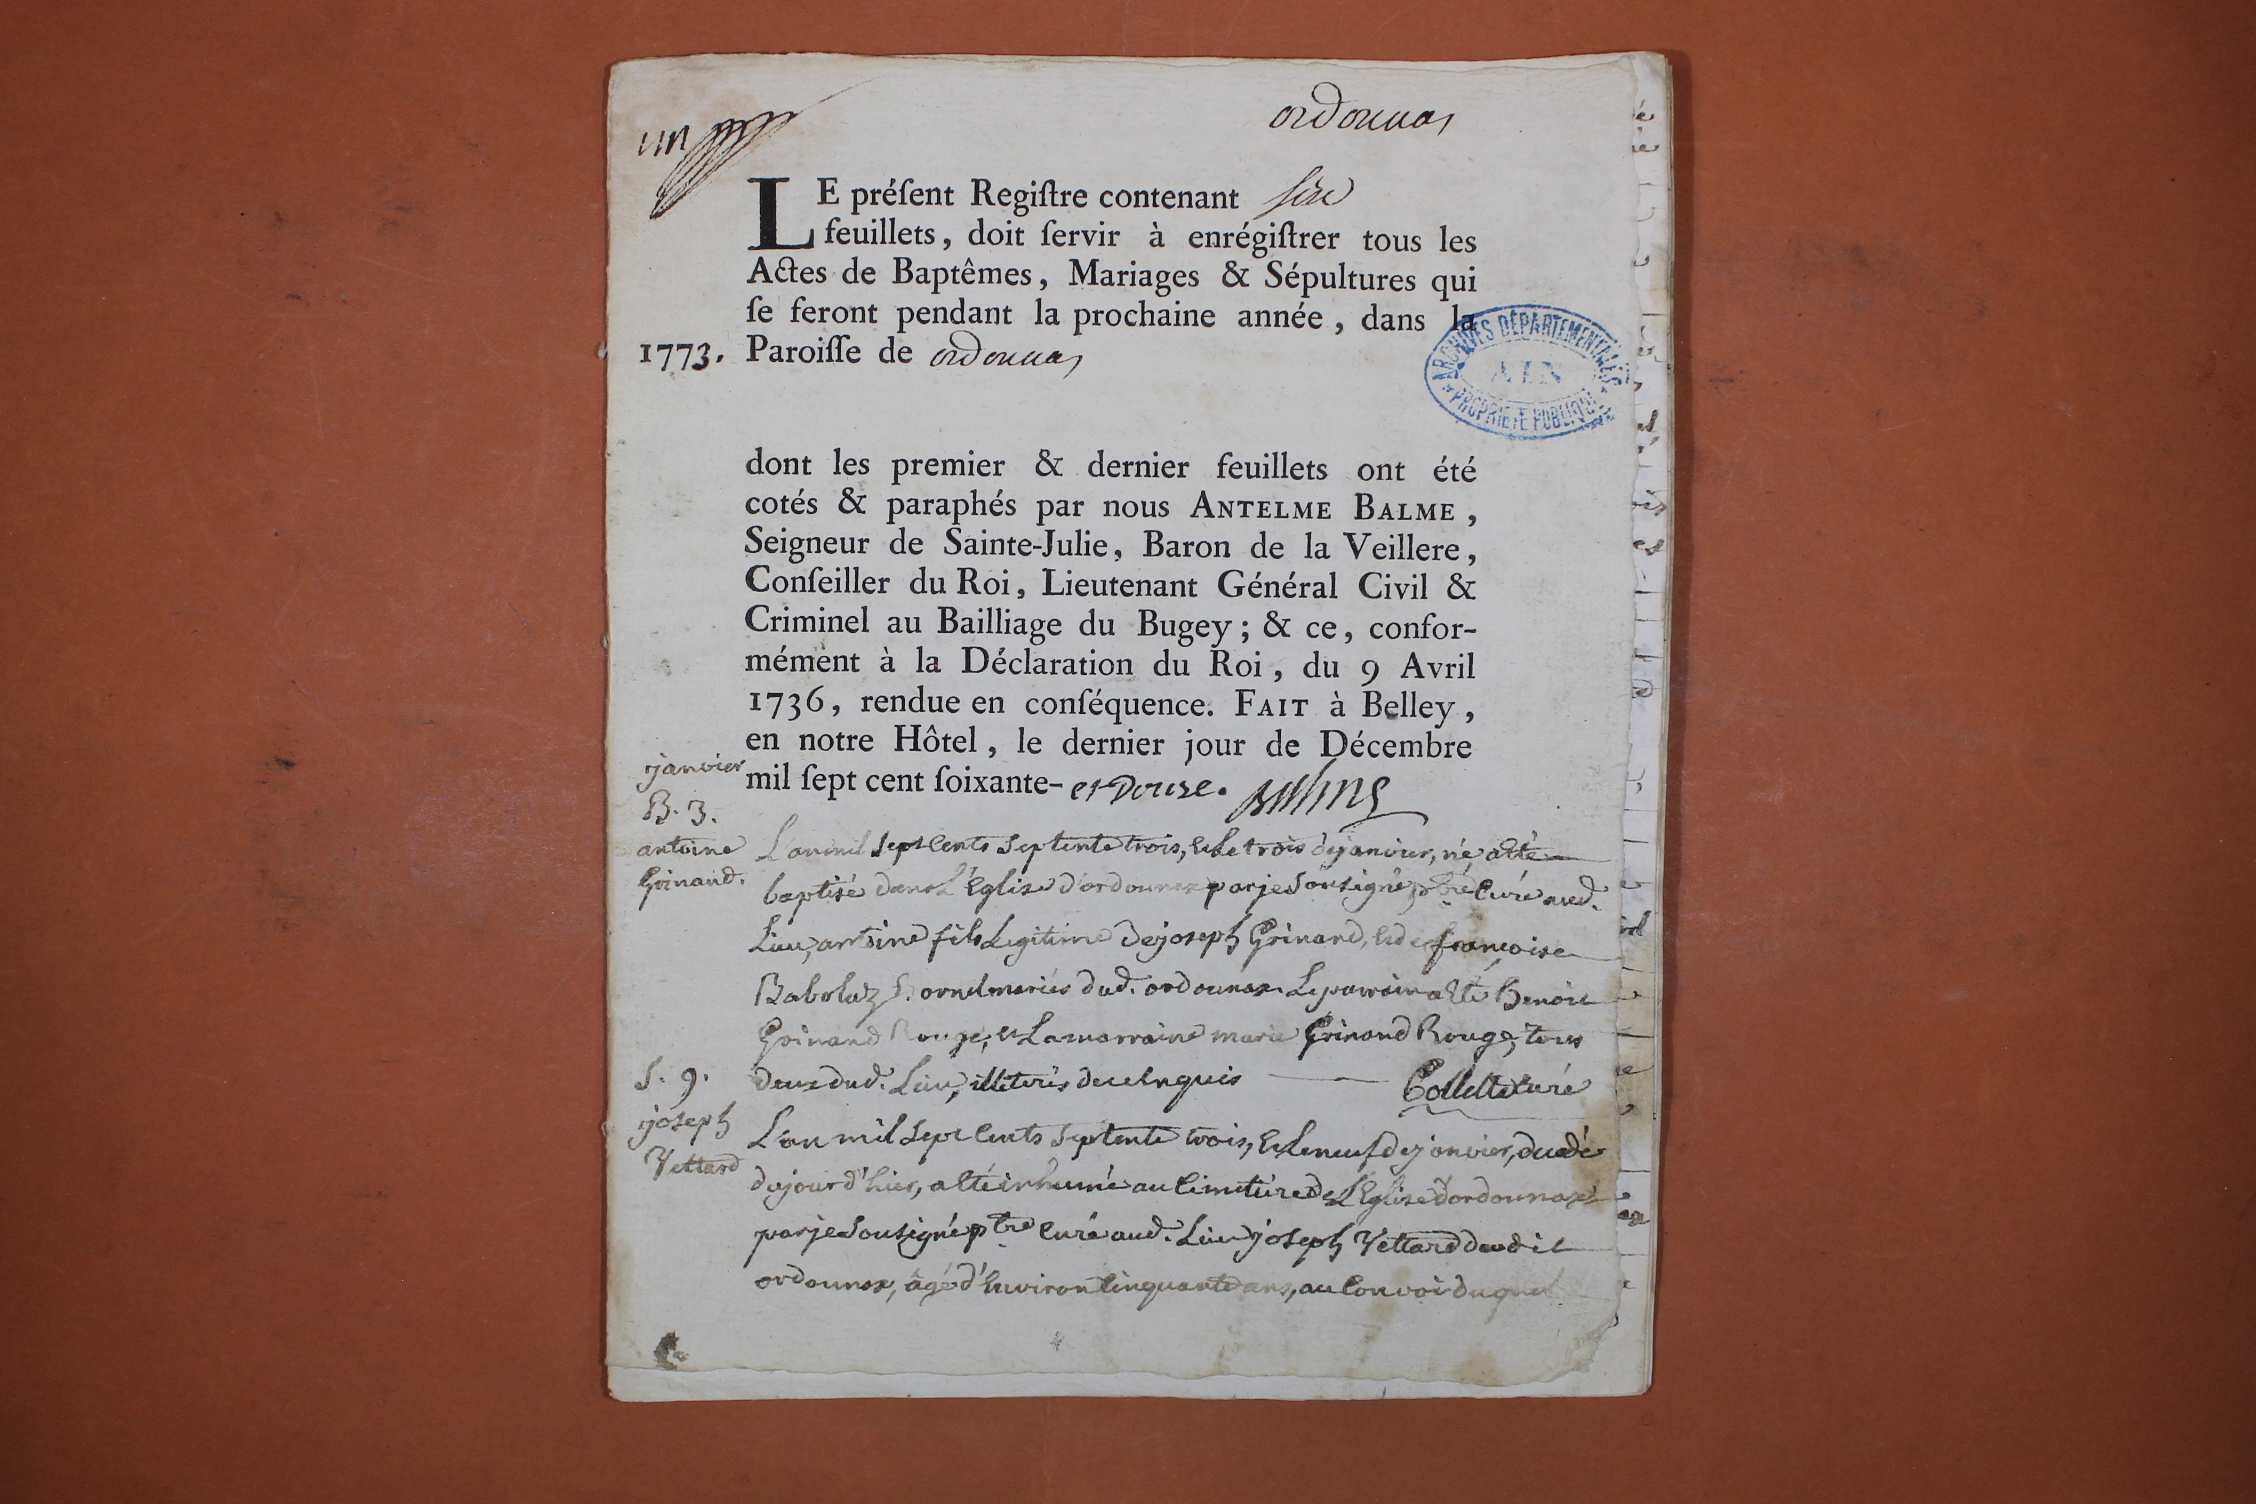 un
ordonnas
LE préſent Regiſtre contenant six
feuillets, doit ſervir à enrégiſtrer tous les
Actes de Baptêmes, Mariages & Sépultures qui
ſe feront pendant la prochaine année, dans la
1773. Paroiſſe de ordonnas
ARCHIVES DÉPARTEMENTALES
AIN
PROPRIÉTÉ PUBLIQUE
dont les premier & dernier feuillets ont été
cotés & paraphés par nous ANTELME BALME,
Seigneur de Sainte-Julie, Baron de la Veillere,
Conſeiller du Roi, Lieutenant Général Civil &
Criminel au Bailliage du Bugey; & ce, confor-
mément à la Déclaration du Roi, du 9 Avril
1736, rendue en conſéquence. FAIT à Belley,
en notre Hôtel, le dernier jour de Décembre
mil ſept cent ſoixante- et Douze. Balme
janvier
B. 3.
antoine
Grinand.
L'an mil sept cents septente trois, et le trois de janvier, né, a été
baptisé dans l'Eglise d'ordonnax par je sousigné, ptre curé aud.
Lieu, antoine fils Legitime de joseph Grinand, et de françoise
Babolaz mariés dud. ordonnax. Le parrain a été Benoit
Grinand Rouge, et La marraine marie Grinand Rouge, tous
deux dud. Lieu, illiterés de ce enquis Collet curé
S. 9.
joseph
Vettard
L'an mil sept cents septente trois, et le neuf de janvier, décédé
du jour d'hier, a été inhumé au cimetière de l'Eglise d'ordonnax
par je sousigné ptre curé aud. Lieu joseph Vettard dudit
ordonnax, âgé d'environ cinquante ans, au convoi duquel